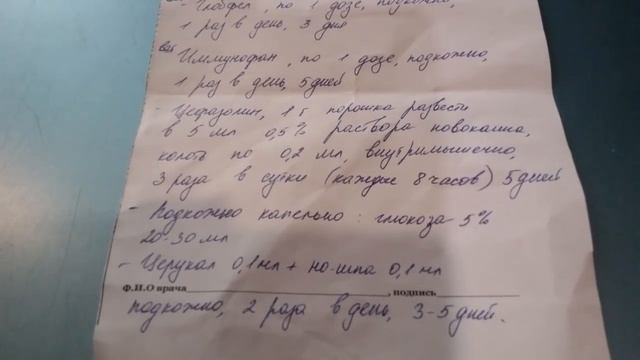 - Глобфел, по 1 дозе, подкожно,
1 раз в день, 3 дня
Иммунофан, по 1 дозе, подкожно,
1 раз в день, 5 дней
- Цефазолин, 1 г порошка развести
в 5 мл 0,5% раствора новокаина,
колоть по 0,2 мл, внутримышечно,
3 раза в сутки (каждые 8 часов) 5 дней
- Подкожно капельно: глюкоза 5%
20-30 мл
- Церукал 0,1 мл + но-шпа 0,1 мл
Ф.И.О врача , подпись
подкожно, 2 раза в день, 3-5 дней.